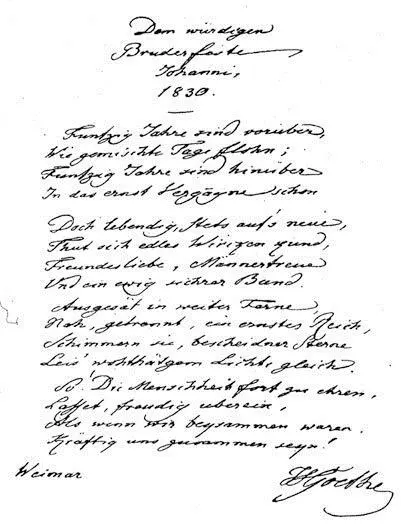 Dem würdigen
Bruderfeste
Johanni,
1830.
Funfzig Jahre sind vorüber,
Wie gemischte Tage flohn;
Funfzig Jahre sind hinüber
In das ernst Vergangne schon
Doch lebendig, stets auf's neue,
Thut sich edles Wirken kund,
Freundesliebe, Männertreue
Und ein ewig sichrer Bund.
Ausgesät in weiter Ferne,
Nah, getrennt, ein ernstes Reich,
Schimmern sie, bescheidner Sterne
Leis' wohlthätgem Lichte gleich.
So! Die Menschheit fort zu ehren,
Lasset, freudig ueberein,
Als wenn wir beysammen waren,
Kräftig uns zusammen seyn!
Weimar
JWGoethe